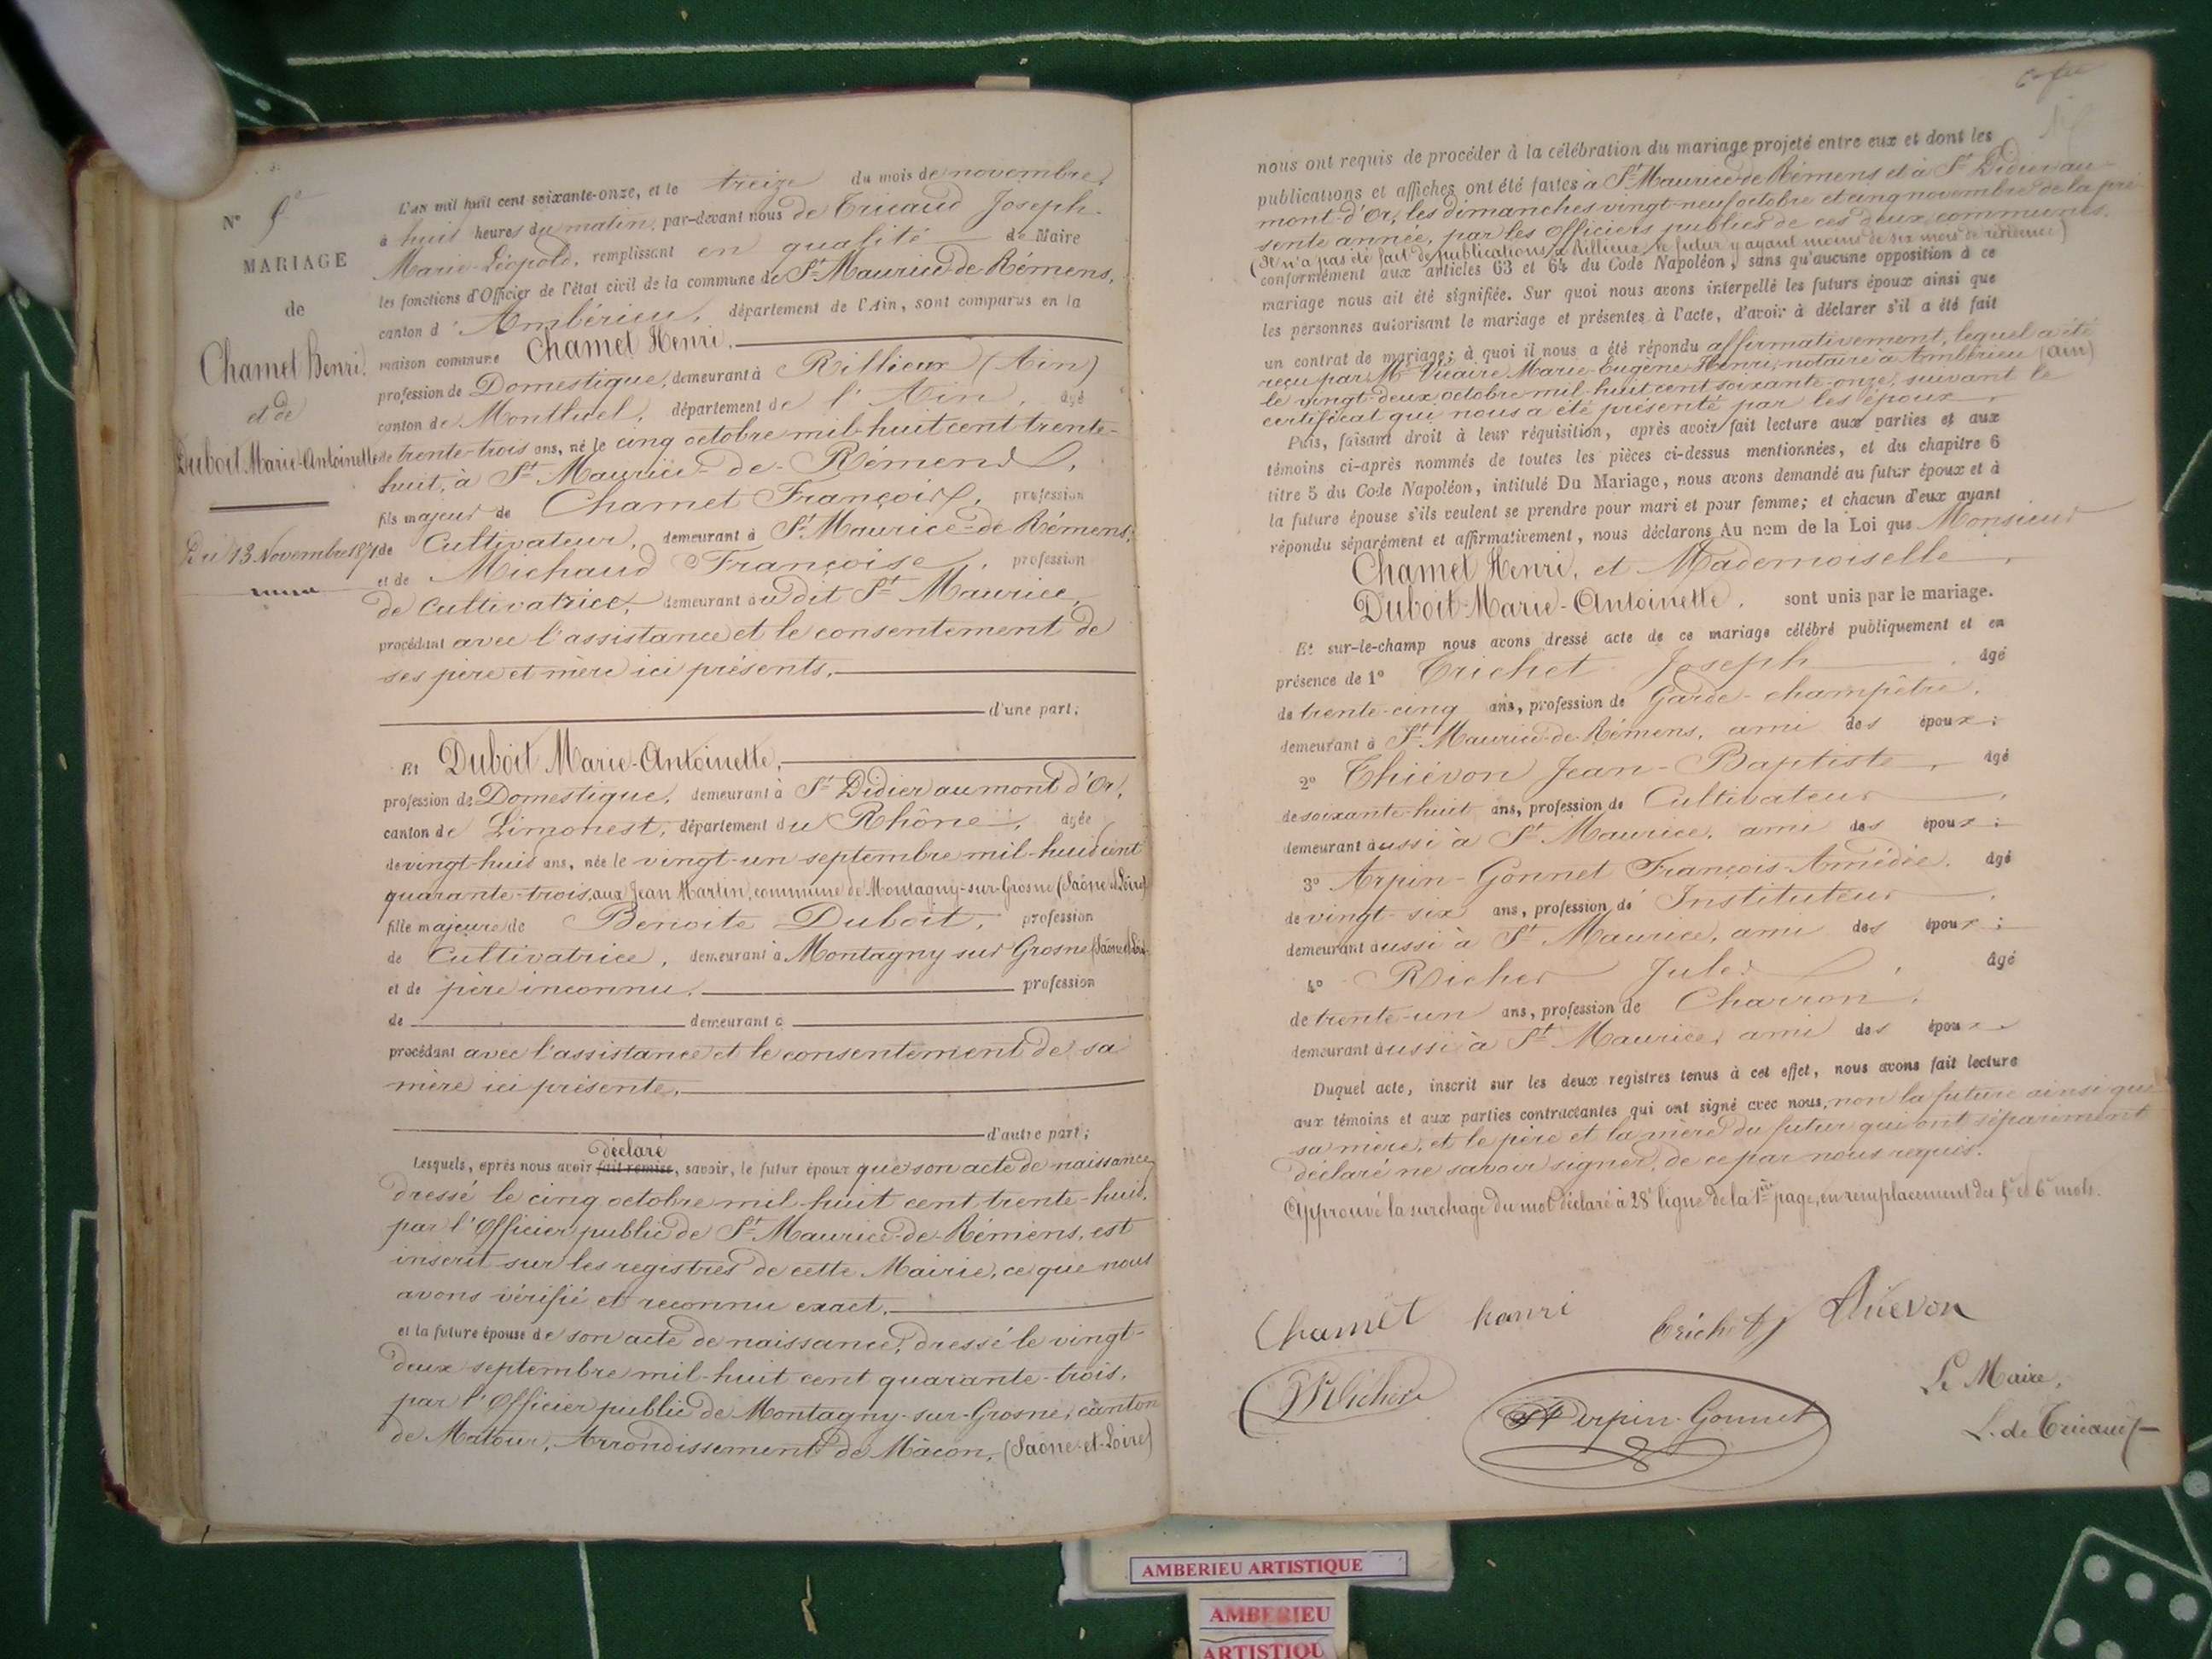 N°
MARIAGE
de
Chamel Henri.
et de
Duboit Marie-Antoinette
Du 13 Novembre 1871
L'an mil huit cent soixante-onze, et le treize du mois de novembre,
à huit heures du matin, par-devant nous de Tricaud Joseph-
Marie-Léopold, remplissant en qualité de Maire
les fonctions d'Officier de l'état civil de la commune de St Maurice-de-Rémens,
canton d'Ambérieu, département de l'Ain, sont comparus en la
maison commune Chamel Henri,
profession de Domestique, demeurant à Rillieux (Ain)
canton de Montluel, département de l'Ain, âgé
de trente-trois ans, né le cinq octobre mil-huit cent trente-
huit, à St Maurice-de-Rémens,
fils majeur de Chamet François, profession
de Cultivateur, demeurant à St Maurice-de-Rémens,
et de Michaud Françoise, profession
de Cultivatrice, demeurant audit St Maurice,
procédant avec l'assistance et le consentement de
ses père et mère ici présents,
d'une part;
Et Duboit Marie-Antoinette,
profession de Domestique, demeurant à St Didier au mont d'Or,
canton de Limonest, département du Rhône, âgée
de vingt-huit ans, née le vingt-un septembre mil-huit cent
quarante-trois, aux Jean Martin, commune de Montagny-sur-Grosne (Saône et Loire)
fille majeure de Benoite Duboit, profession
de Cultivatrice, demeurant à Montagny sur Grosne (Saône et Loire)
et de père inconnu, profession
de demeurant à
procédant avec l'assistance et le consentement de sa
mère ici présente,
d'autre part;
déclaré
Lesquels, après nous avoir fait remise, savoir, le futur époux que son acte de naissance
dressé le cinq octobre mil-huit cent trente-huit,
par l'Officier public de St Maurice-de-Rémens, est
inscrit sur les registres de cette Mairie, ce que nous
avons vérifié et reconnu exact,
et la future épouse de son acte de naissance, dressé le vingt-
deux septembre mil-huit cent quarante-trois,
par l'Officier public de Montagny-sur-Grosne, canton
de Matour, Arrondissement de Mâcon, (Saône-et-Loire)
nous ont requis de procéder à la célébration du mariage projeté entre eux et dont les
publications et affiches ont été faites à St Maurice-de-Rémens et à St Didier au
mont-d'Or, les dimanches vingt-neuf octobre et cinq novembre de la pré-
sente année, par les Officiers publics de ces deux communes.
(Il n'a pas été fait de publications à Rillieux, le futur y ayant moins de six mois de résidence)
conformément aux articles 63 et 64 du Code Napoléon, sans qu'aucune opposition à ce
mariage nous ait été signifiée. Sur quoi nous avons interpellé les futurs époux ainsi que
les personnes autorisant le mariage et présentes à l'acte, d'avoir à déclarer s'il a été fait
un contrat de mariage; à quoi il nous a été répondu affirmativement, lequel a été
reçu par Me Vicaire Marie-Eugène-Henri, notaire à Ambérieu (Ain)
le vingt-deux octobre mil-huit cent soixante-onze, suivant le
certificat qui nous a été présenté par les époux.
Puis, faisant droit à leur réquisition, après avoir fait lecture aux parties et aux
témoins ci-après nommés de toutes les pièces ci-dessus mentionnées, et du chapitre 6
titre 5 du Code Napoléon, intitulé Du Mariage, nous avons demandé au futur époux et à
la future épouse s'ils veulent se prendre pour mari et pour femme; et chacun d'eux ayant
répondu séparément et affirmativement, nous déclarons Au nom de la Loi que Monsieur
Chamel Henri, et Mademoiselle
Duboit-Marie-Antoinette, sont unis par le mariage.
Et sur-le-champ nous avons dressé acte de ce mariage célébré publiquement et en
présence de 1° Trichet Joseph, âgé
de trente-cinq ans, profession de Garde-champêtre,
demeurant à St Maurice-de-Rémens, ami des époux;
2° Thiévon Jean-Baptiste, âgé
de soixante-huit ans, profession de Cultivateur,
demeurant aussi à St Maurice, ami des époux;
3° Arpin-Gonnet François-Amédée, âgé
de vingt-six ans, profession de Instituteur,
demeurant aussi à St Maurice, ami des époux;
4° Richer Jules, âgé
de trente-un ans, profession de Charron,
demeurant aussi à St Maurice, ami des époux
Duquel acte, inscrit sur les deux registres tenus à cet effet, nous avons fait lecture
aux témoins et aux parties contractantes qui ont signé avec nous, non la future ainsi que
sa mère, et le père et la mère du futur qui ont séparément
déclaré ne savoir signer, de ce par nous requis.
Approuvé la surchage du mot déclaré à 28e ligne de la 1ère page, en remplacement des 5e et 6e mots.
Chamet henri
Trichet J
Thievon
J Richer
Arpin-Gonnet
Le Maire,
L. de Tricaud
AMBERIEU ARTISTIQUE
AMBERIEU
ARTISTIQU